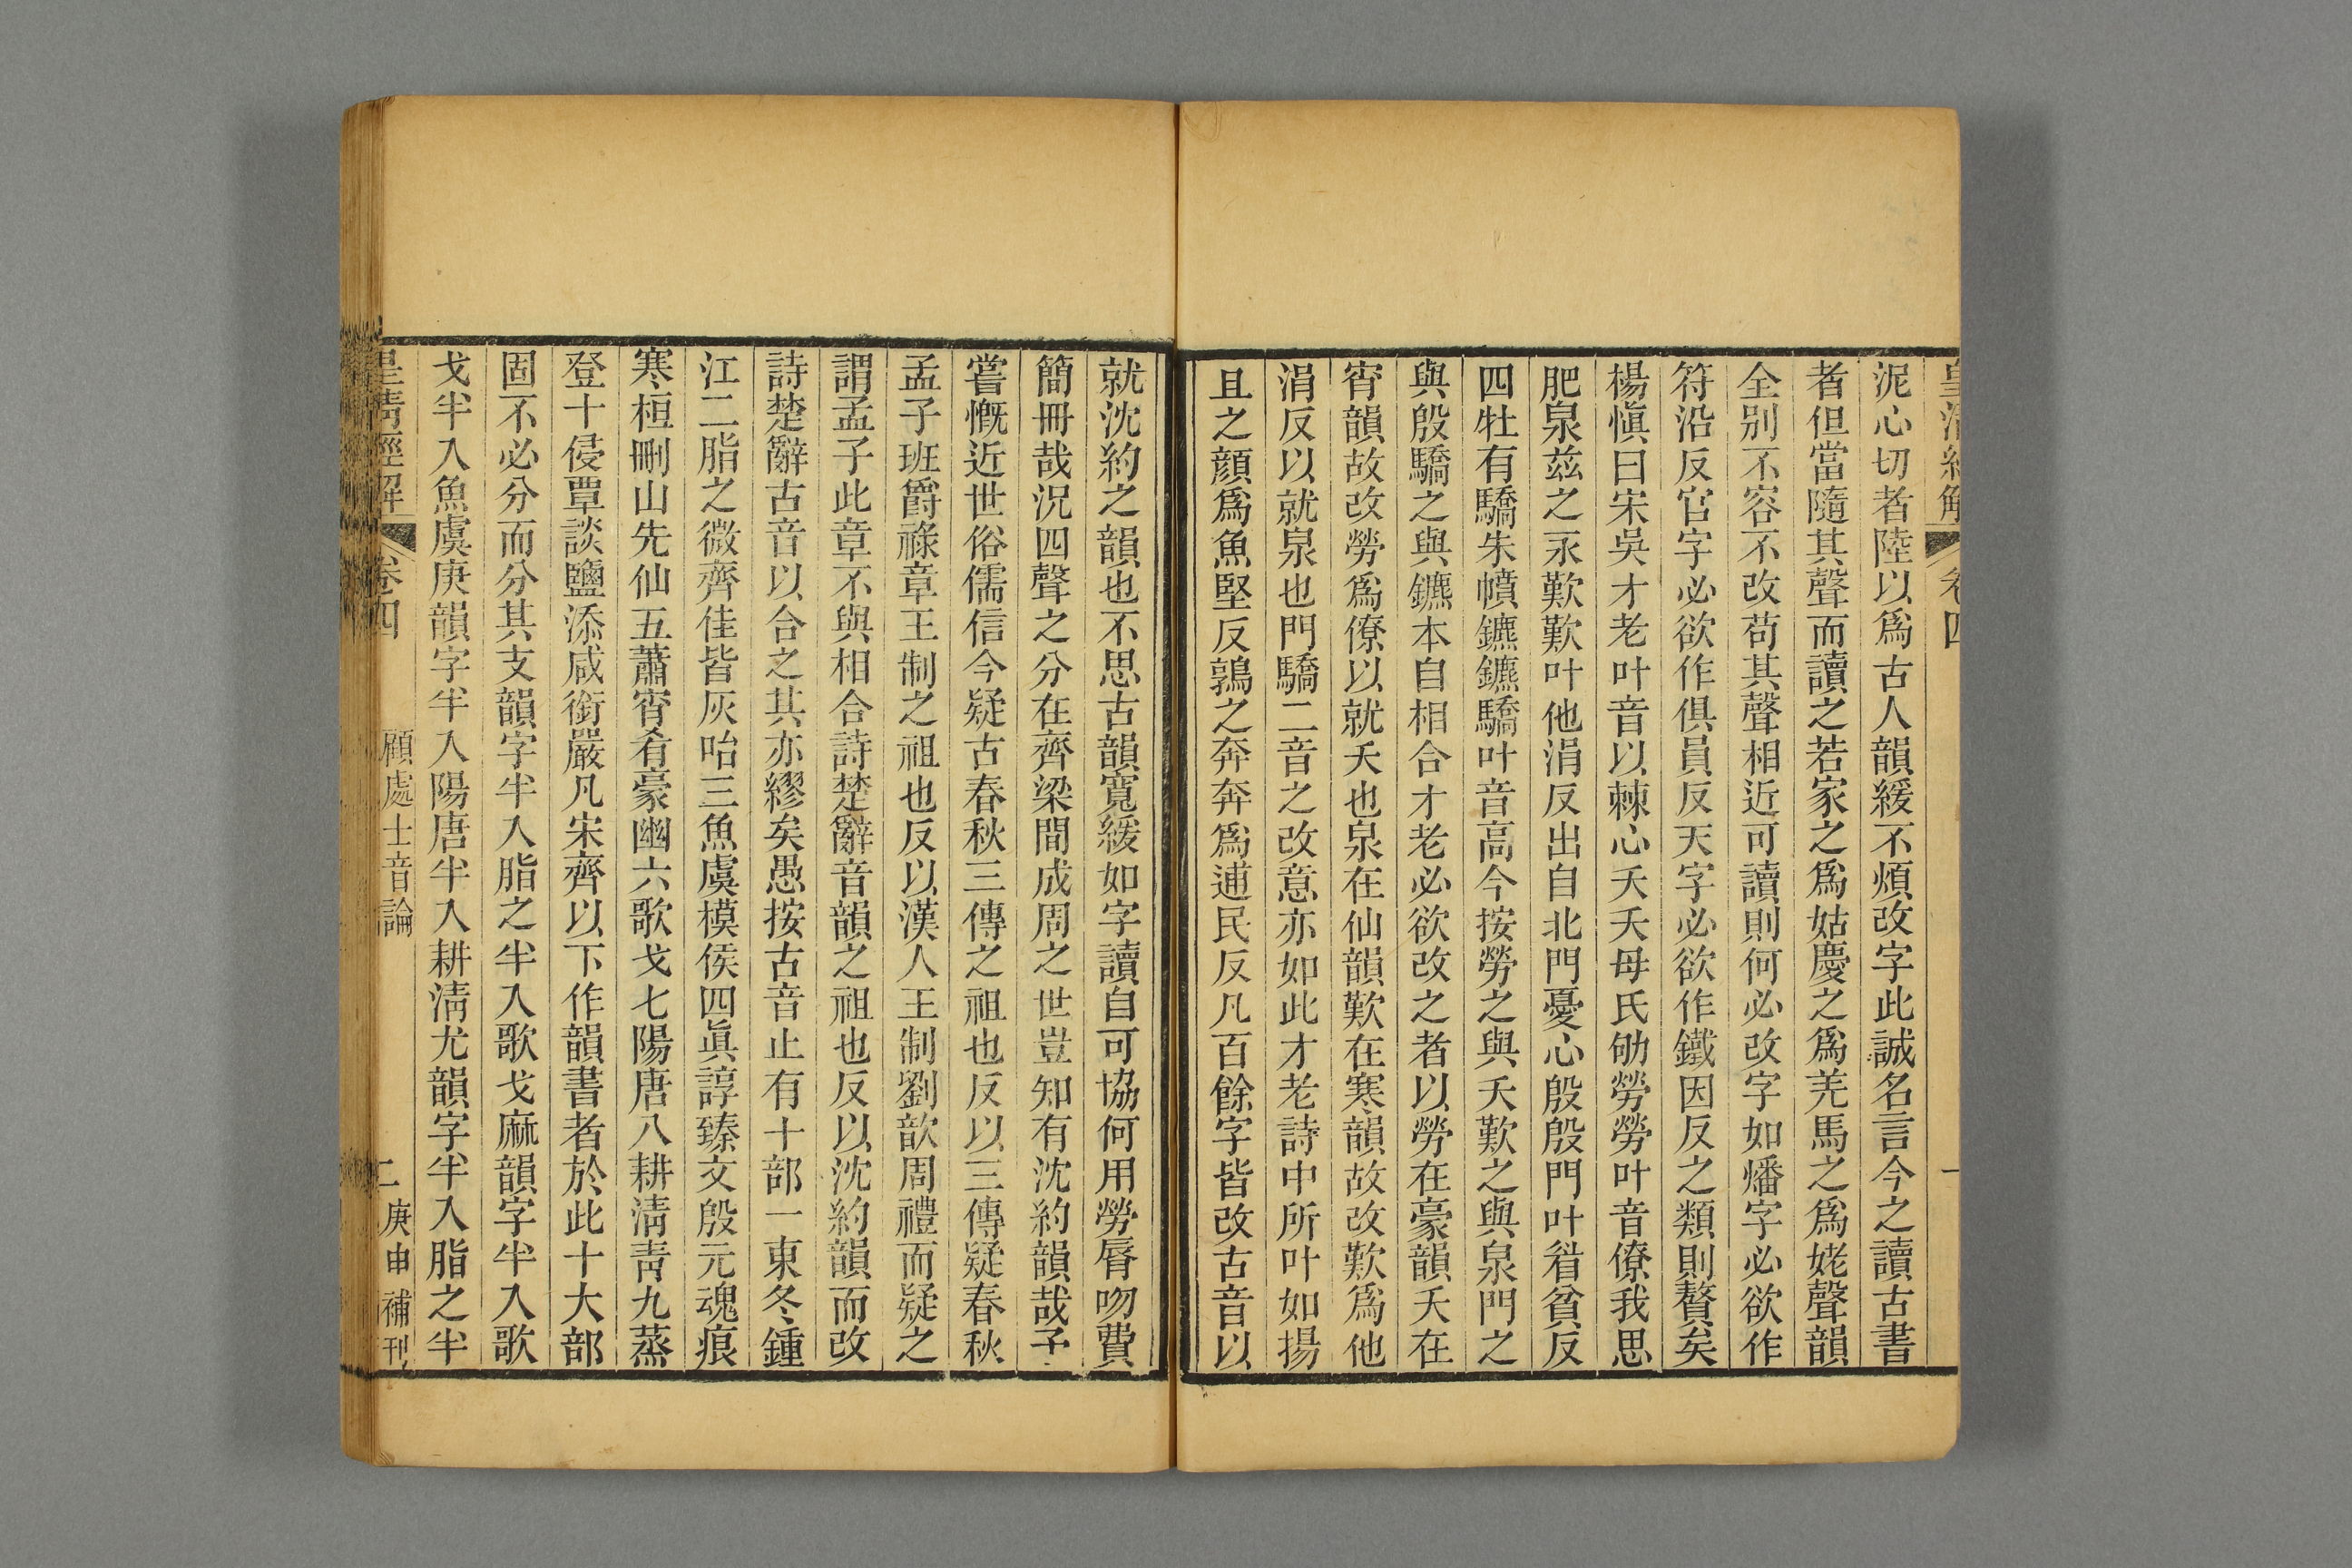 皇清經解 卷四 一
泥心切者陸以爲古人韻緩不煩改字此誠名言今之讀古書
者但當隨其聲而讀之若家之爲姑慶之爲羌馬之爲姥聲韻
全别不容不改苟其聲相近可讀則何必改字如燔字必欲作
符沿反官字必欲作俱員反天字必欲作鐵因反之類則贅矣
楊愼曰宋吳才老叶音以棘心夭夭母氏劬勞勞叶音僚我思
肥泉茲之永歎歎叶他涓反出自北門憂心殷殷門叶眉貧反
四牡有驕朱幩鑣鑣驕叶音高今按勞之與夭歎之與泉門之
與殷驕之與鑣本自相合才老必欲改之者以勞在豪韻夭在
宵韻故改勞爲僚以就夭也泉在仙韻歎在寒韻故改歎爲他
涓反以就泉也門驕二音之改意亦如此才老詩中所叶如揚
且之顔爲魚堅反鶉之奔奔爲逋民反凡百餘字皆改古音以
就沈約之韻也不思古韻寬緩如字讀自可協何用勞脣吻費
簡冊哉況四聲之分在齊梁間成周之世豈知有沈約韻哉予
嘗慨近世俗儒信今疑古春秋三傳之祖也反以三傳疑春秋
孟子班爵祿章王制之祖也反以漢人王制劉歆周禮而疑之
謂孟子此章不與相合詩楚辭音韻之祖也反以沈約韻而改
詩楚辭古音以合之其亦繆矣愚按古音止有十部一東冬鍾
江二脂之微齊佳皆灰咍三魚虞模侯四眞諄臻文殷元魂痕
寒桓刪山先仙五蕭宵肴豪幽六歌戈七陽唐八耕淸靑九蒸
登十侵覃談鹽添咸銜嚴凡宋齊以下作韻書者於此十大部
固不必分而分其支韻字半入脂之半入歌戈麻韻字半入歌
戈半入魚虞庚韻字半入陽唐半入耕淸尤韻字半入脂之半
皇清經解 卷四 顧處士音論 二 庚申補刊